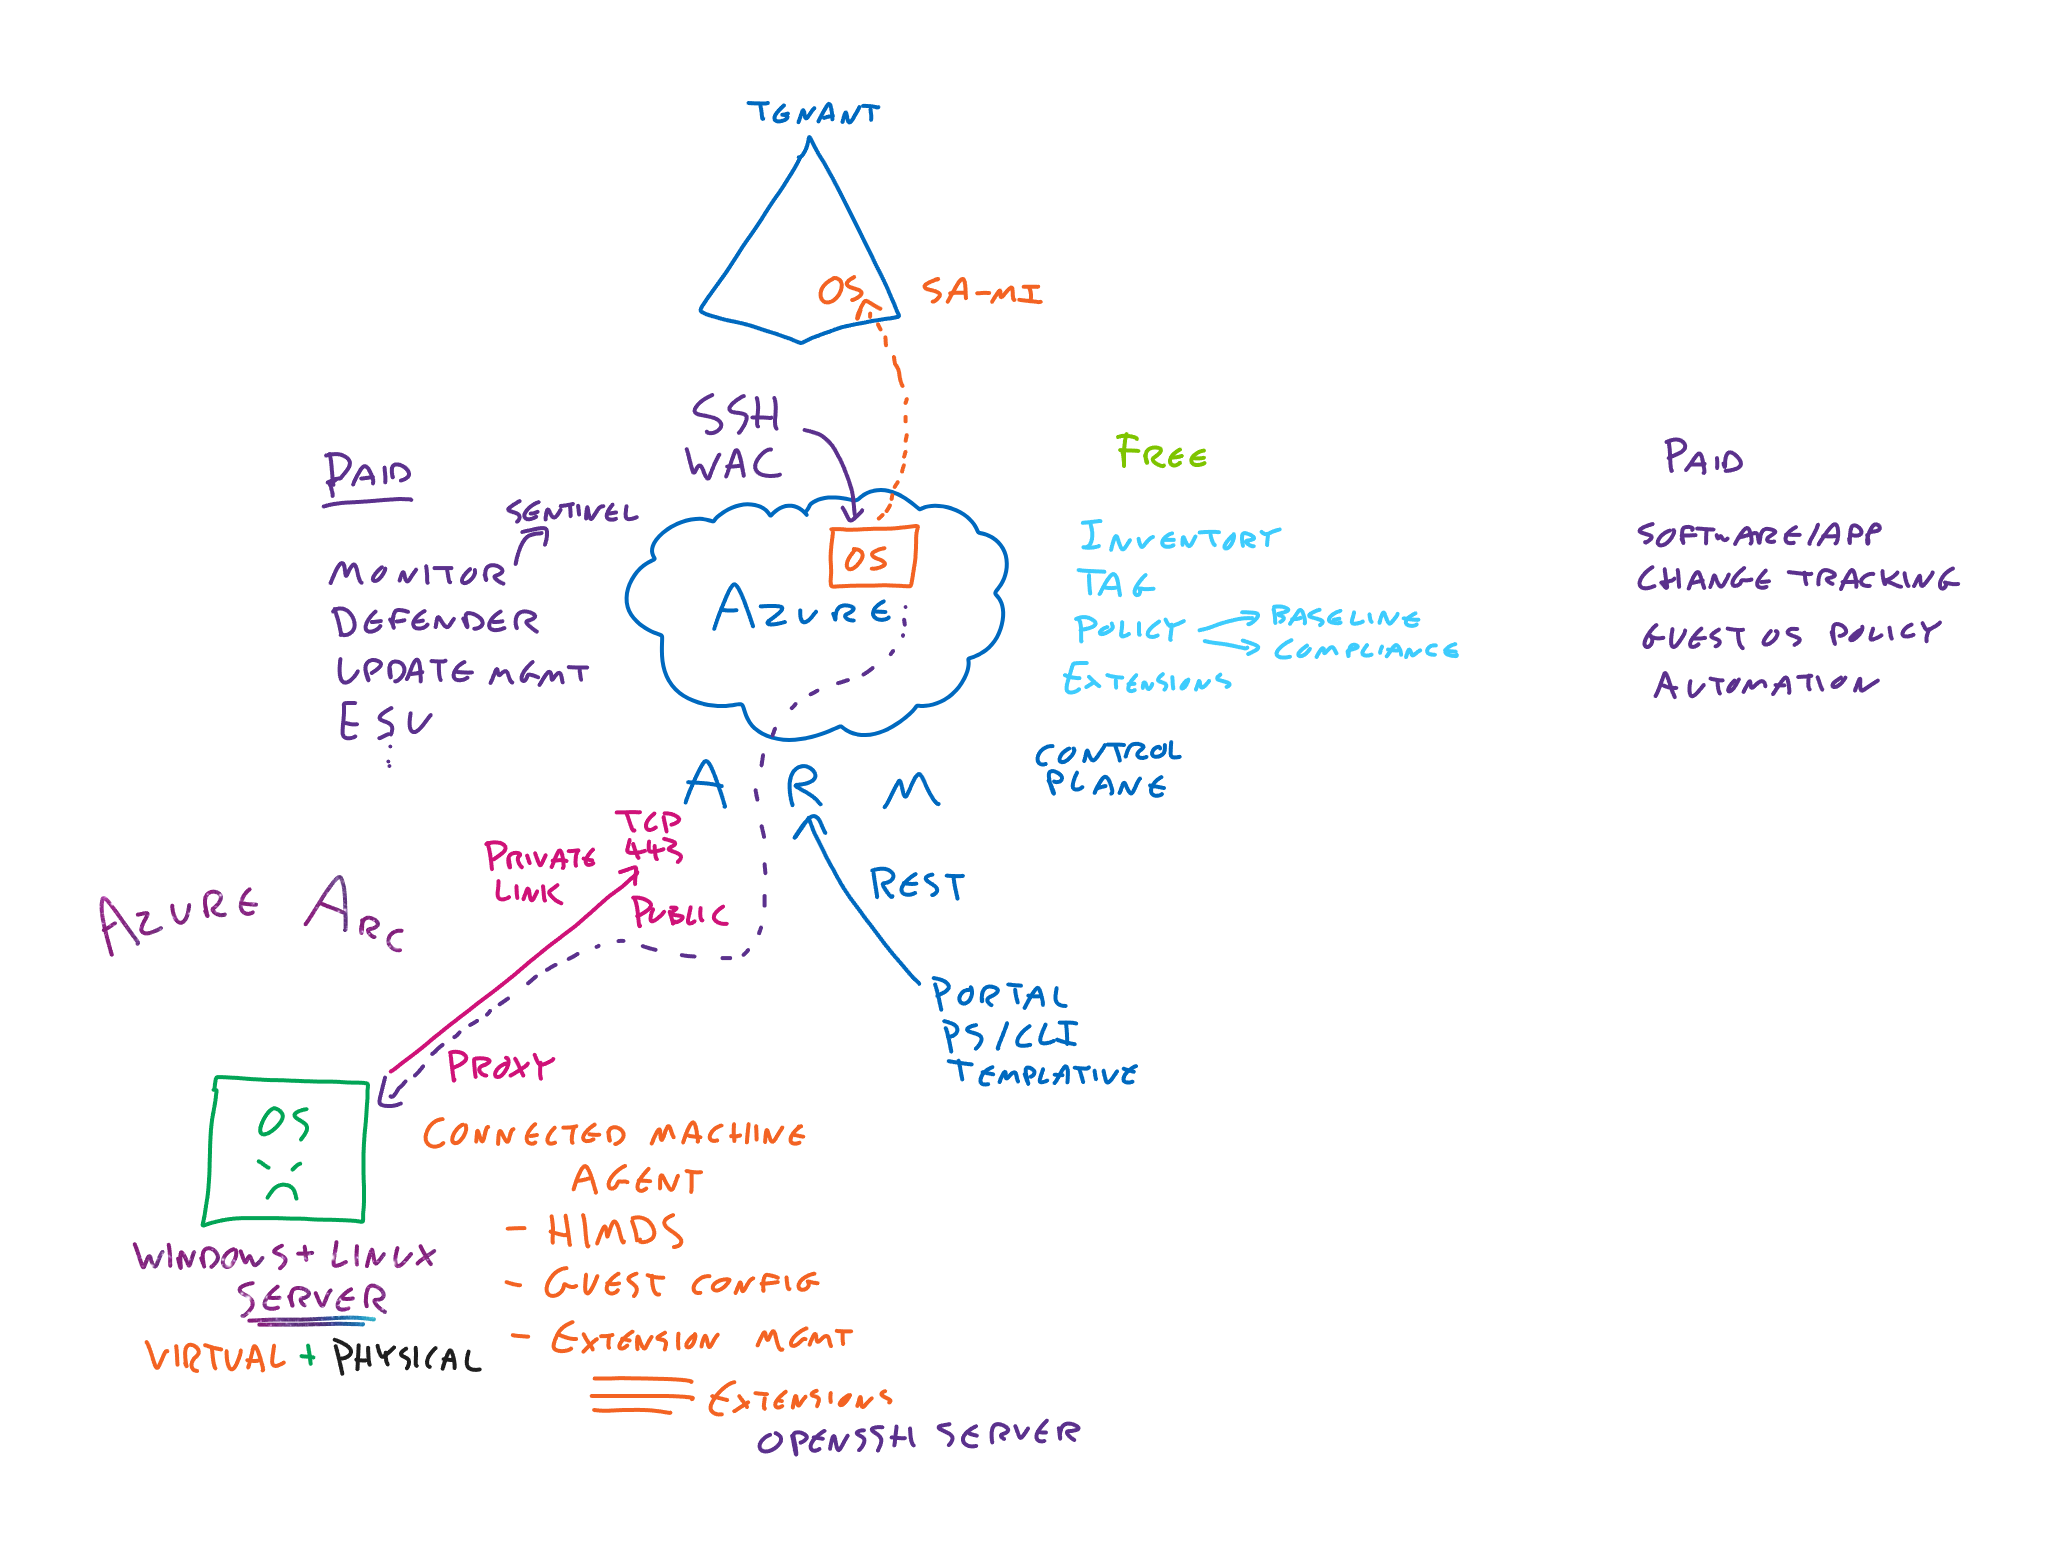 TENANT
OS
SA-MI
SSH
WAC
PAID
SENTINEL
MONITOR
DEFENDER
UPDATE MGMT
ESU
OS
AZURE
FREE
INVENTORY
TAG
POLICY
BASELINE
COMPLIANCE
EXTENSIONS
PAID
SOFTWARE/APP
CHANGE TRACKING
GUEST OS POLICY
AUTOMATION
CONTROL
PLANE
A R M
TCP
443
PRIVATE
LINK
PUBLIC
REST
AZURE ARC
PORTAL
PS/CLI
TEMPLATIVE
PROXY
OS
WINDOWS + LINUX
SERVER
VIRTUAL + PHYSICAL
CONNECTED MACHINE
AGENT
- HIMDS
- GUEST CONFIG
- EXTENSION MGMT
EXTENSIONS
OPENSSH SERVER